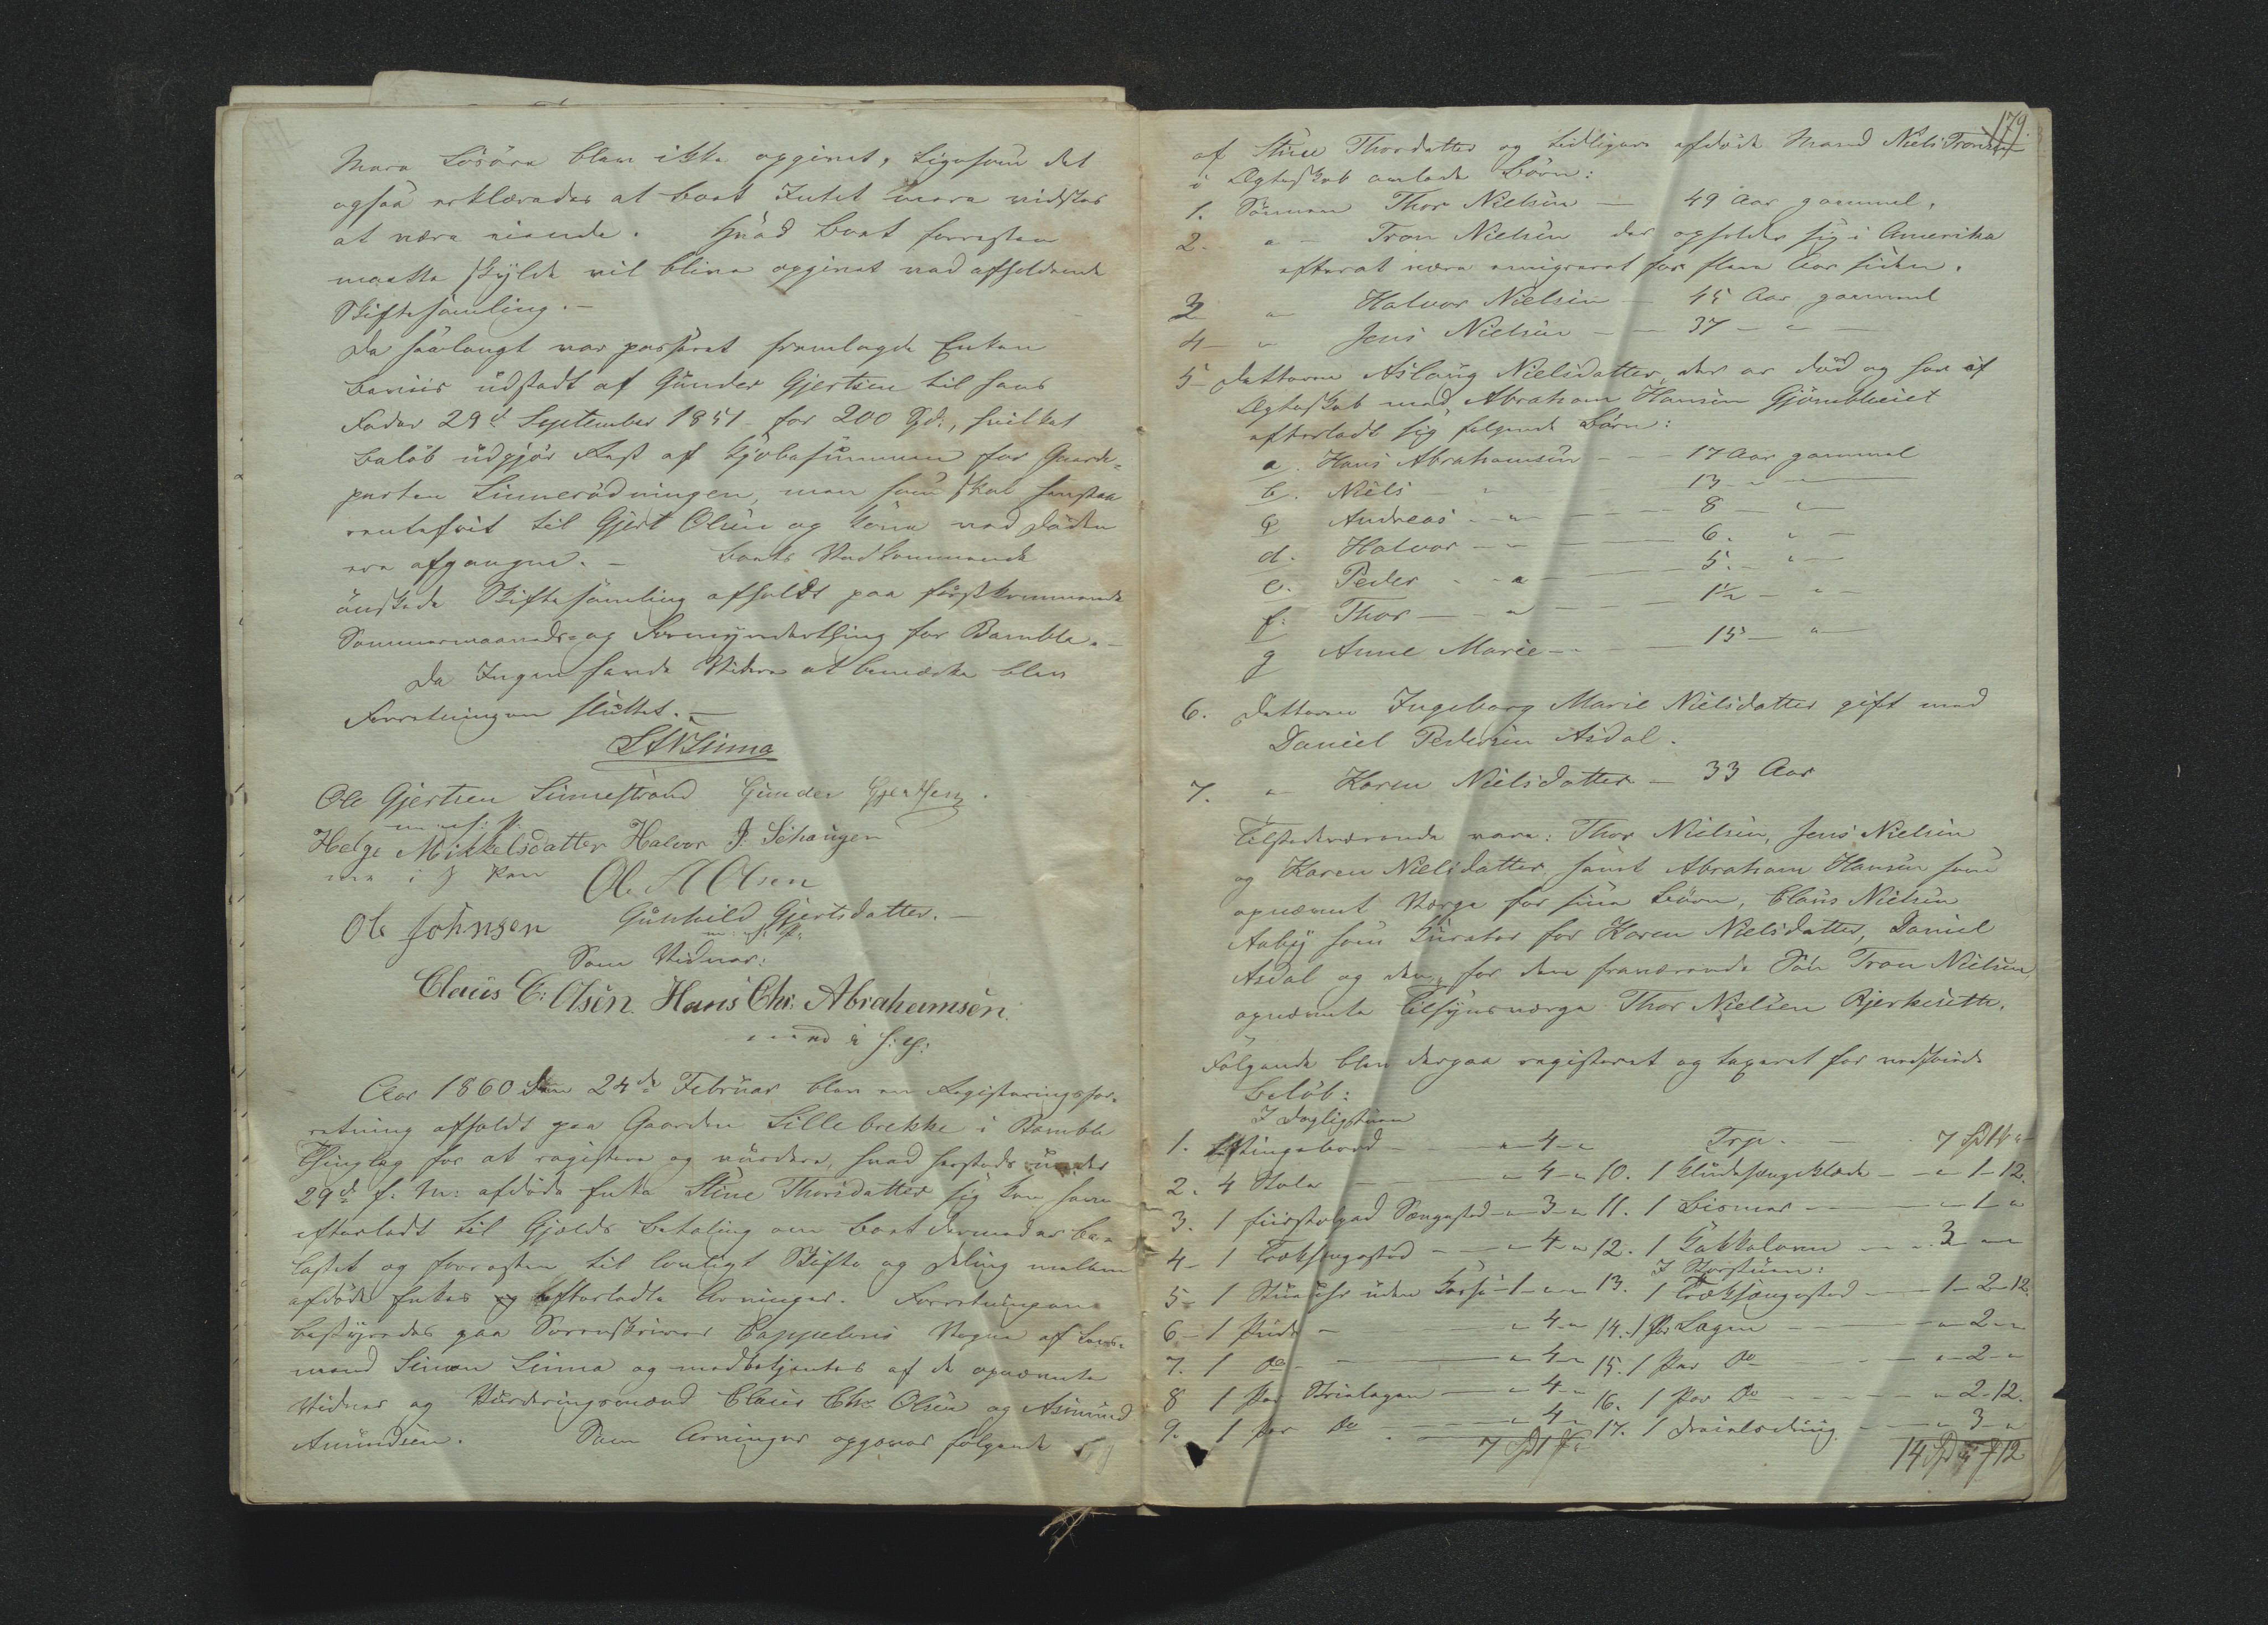 Mere Løsøre blev ikke opgivet, ligesom det
ogsaa erklæredes at boet Intet mere vidstes
at være eiende. Hvad boet forresten
maatte skylde vil blive opgivet ved afholdende
Skiftesamling.-
Da saalangt var passeret fremlagde Enken
beviis udstedt af Gunder Gjertsen til hans
Fader 29d September 1851 for 200 Spd., hvilket
beløb udgjør Rest af Kjøbesummen for Gaard-
parten Sinnerødningen, men som skal henstaa
rentefrit til Gjert Olsen og Kone ved Døden
ere afgangne.- boets Vedkommende
ønskede Skiftesamling afholdt paa førstkommende
Sommermaaneds- og Formynderthing for Bamble.-
Da Ingen havde Videre at bemærke blev
Forretningen sluttet.-
Sinna
Ole Gjertsen Sinnestrand Gunder Gjertsen.
m. p:
Helge Mikkelsdatter Halvor J: Schaugen
i Pen
Ole A Olsen
Ole Johnsen Gunhild Gjertsdatter.-
Som Vidner:
Claus C: Olsen. Hans Chr. Abrahamsen.
Aar 1860 den 24de Februar blev en Registreringsfor-
retning afholdt paa Gaarden Lillebrekke i Bamble
Thinglag for at registrere og vurdere, hvad hersteds under
29d f: M: afdøde Enke Stine Thorsdatter sig kan have
efterladt til Gjælds betaling om boet dermed er be-
lastet og forresten til lovligt Skifte og Deling mellem
afdøde Enkes efterladte Arvinger. Forretningen
bestyredes paa Sorenskriver Cappelens Vegne af Lens-
mand Simon Sinna og medbetjentes af de opnævnte
Vidner og Vurderingsmænd Claus Chr. Olsen og Asmund
Amundsen. Som Arvinger opgaves følgende
179.
af Stine Thorsdatter og tidligere afdøde Mand Niels Tronsen
i Ægteskab avlede Børn:
1. Sønnen Thor Nielsen - 49 Aar gammel,
2. " - Tron Nielsen der opholder sig i Amerika
efterat være emigreret for flere Aar siden.
3 " Halvor Nielsen - 45 Aar gammel
4- " Jens Nielsen - - 37 - " -
5- Datteren Aslaug Nielsdatter, der er død og har af
Ægteskab med Abraham Hansen Gjømblheiet
efterladt sig følgende Børn:
a. Hans Abrahamsen - - - 17 Aar gammel
b. Niels - " 13 - " -
c Andreas - " - - - - 8 - " -
d. Halvor - " - - - 6. " -
e. Peder - " - - - 5. - " -
f. Thor - - " - - - 1½ - " -
g Anne Marie - - - 15 - " -
6. Datteren Ingeborg Marie Nielsdatter gift med
Daniel Pedersen Asdal.
7. " Karen Nielsdatter - 33 Aar
Tilstedeværende vare: Thor Nielsen, Jens Nielsen
og Karen Nielsdatter, samt Abraham Hansen som
opnævnt Værge for sine Børn, Claus Nielsen
Aaby som Kurator for Karen Nielsdatter, Daniel
Asdal og den, for den fraværende Søn Tron Nielsen
opnævnte Tilsynsværge Thor Nielsen
Følgende blev derpaa registreret og taxeret for vedstaaende
Beløb:
I Dagligstuen
1. bord - " - 4 - " Trp. - 7 Spd 1 " -
2. 4 Stole - " - 4 - " 10. 1 - " - 1 - 12.
3. 1 Sengested - " - 3 - " 11. 1 Bismer - " - 1 - "
4- 1 Træksengested - " - 4 - " 12. 1 Kakkelovn - " - 3 - "
I Storstuen:
5- 1 Stueuhr uden Kasse - 1 - " - " 13. 1 Træksengested - 1 - 2 - 12.
6- 1 - " - 4 - " 14. 1 Par Lagen - " - 2 - "
7. 1 Do - " - 4 - " 15. 1 Par Do - " - 2 - "
8 1 Par Strielagen - " - 4 - " 16. 1 Par Do - " - 2 - 12.
9. 1 Par Do - " - 4 - " 17. 1 - " - 3 - "
7 Spd 1
14 Spd 12